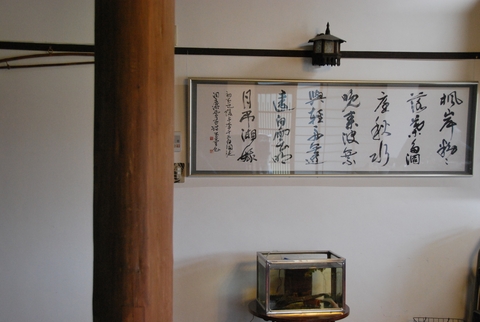 楓岸紛々
落葉多洞
庭秋水
晚来波乘
興輕舟無近
遠白雲明
月弔湘娥